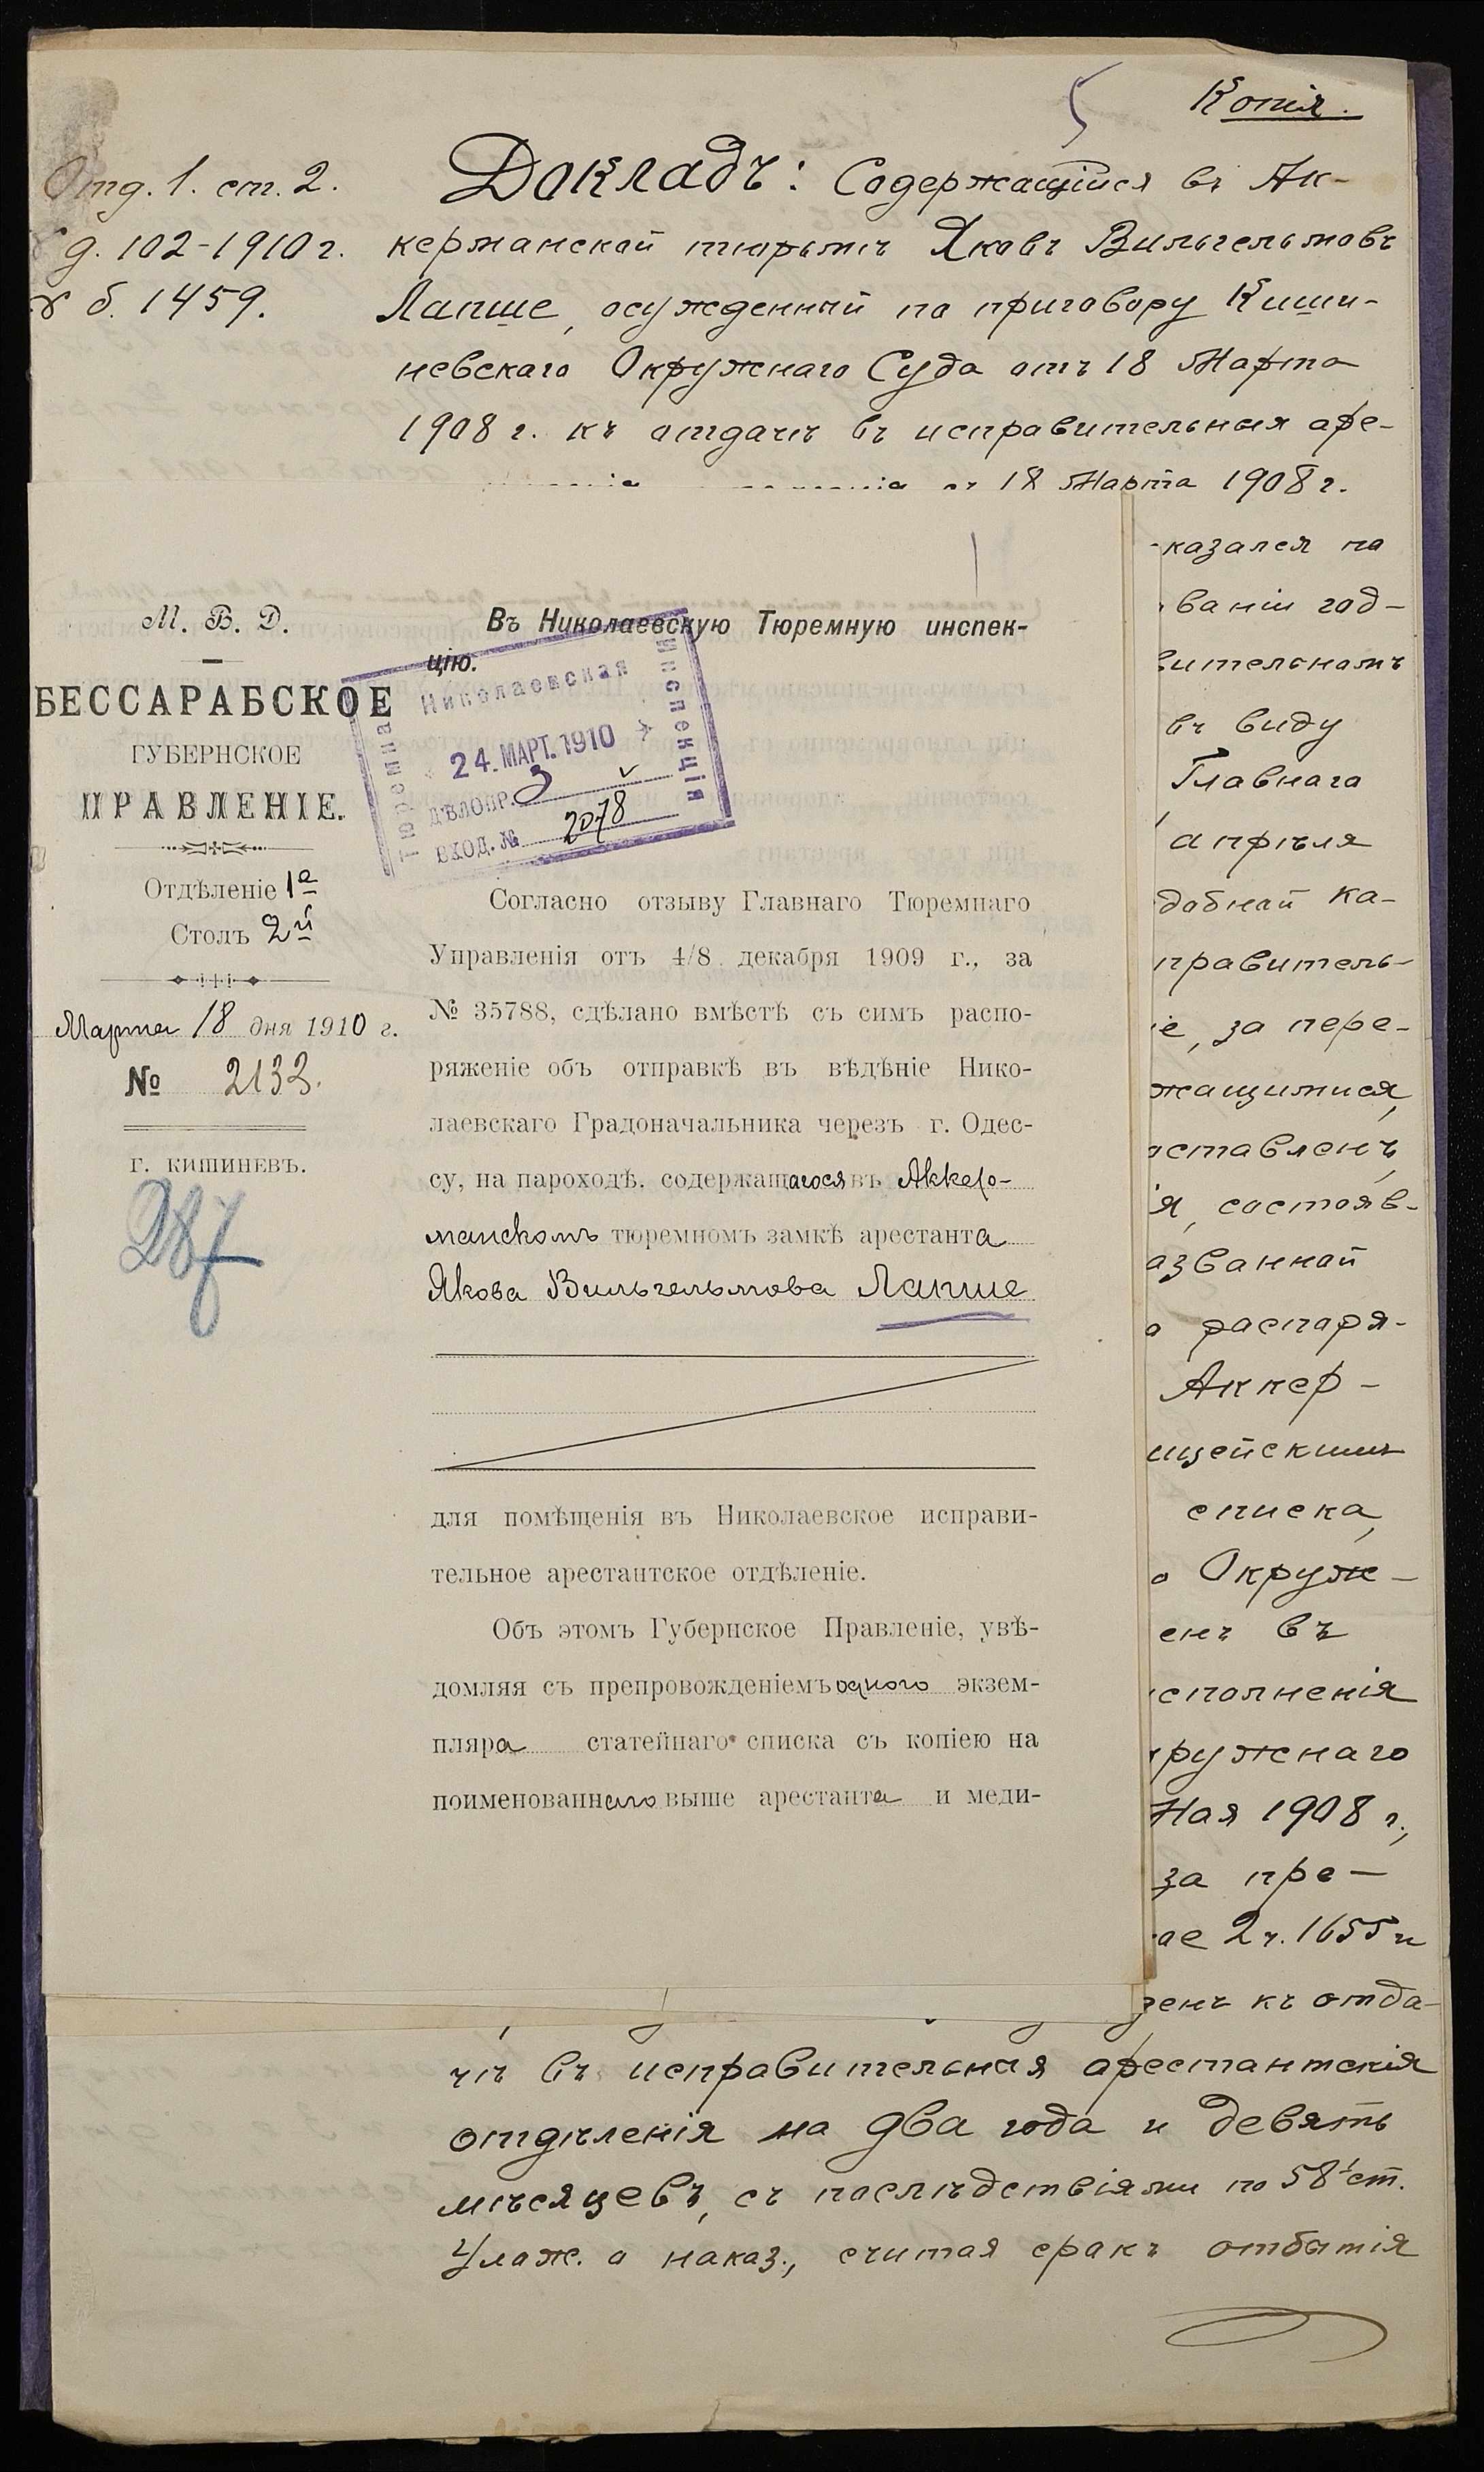 Копія.
Отд. 1. ст. 2.
д. 102-1910 г.
б. 1459.
Докладъ: Содержащійся въ Ак-
керманской тюрьмѣ Яковъ Вильгельмовъ
Лапше, осужденный по приговору Киши-
невскаго Окружнаго Суда отъ 18 Марта
1908 г. къ отдачѣ въ исправительныя аре-
18 Марта 1908 г.
М. В. Д.
БЕССАРАБСКОЕ
ГУБЕРНСКОЕ
ПРАВЛЕНІЕ.
Отдѣленіе 1е
Столъ 2й
Марта 18 дня 1910 г.
№ 2133.
г. КИШИНЕВЪ.
287
Въ Николаевскую Тюремную инспек-
цію.
Николаевская
Тюремная
Инспекція
24. МАРТ. 1910
ДѢЛОПР. 3
ВХОД. № 2078
Согласно отзыву Главнаго Тюремнаго
Управленія отъ 4/8 декабря 1909 г., за
№ 35788, сдѣлано вмѣстѣ съ симъ распо-
ряженіе объ отправкѣ въ вѣдѣніе Нико-
лаевскаго Градоначальника черезъ г. Одес-
су, на пароходѣ, содержащагося въ Аккер-
манскомъ тюремномъ замкѣ арестанта
Якова Вильгельмова Лапше
для помѣщенія въ Николаевское исправи-
тельное арестантское отдѣленіе.
Объ этомъ Губернское Правленіе, увѣ-
домляя съ препровожденіемъ одного экзем-
пляра статейнаго списка съ копіею на
поименованнаго выше арестанта и меди-
казался по
ваніи год-
вительномъ
въ виду
Главнаго
апрѣля
добной ка-
правитель-
іе, за пере-
жащимися,
оставленъ,
я, состояв-
азванной
о распоря-
Аккер-
ицейскимъ
списка,
о Окруж-
енъ въ
сполненія
ружнаго
Мая 1908 г.,
за пре-
ое 2 ч. 1655 и
енъ къ отда-
чѣ въ исправительныя арестантскія
отдѣленія на два года и девять
мѣсяцевъ, съ послѣдствіями по 58¹ ст.
Улож. о наказ., считая срокъ отбытія